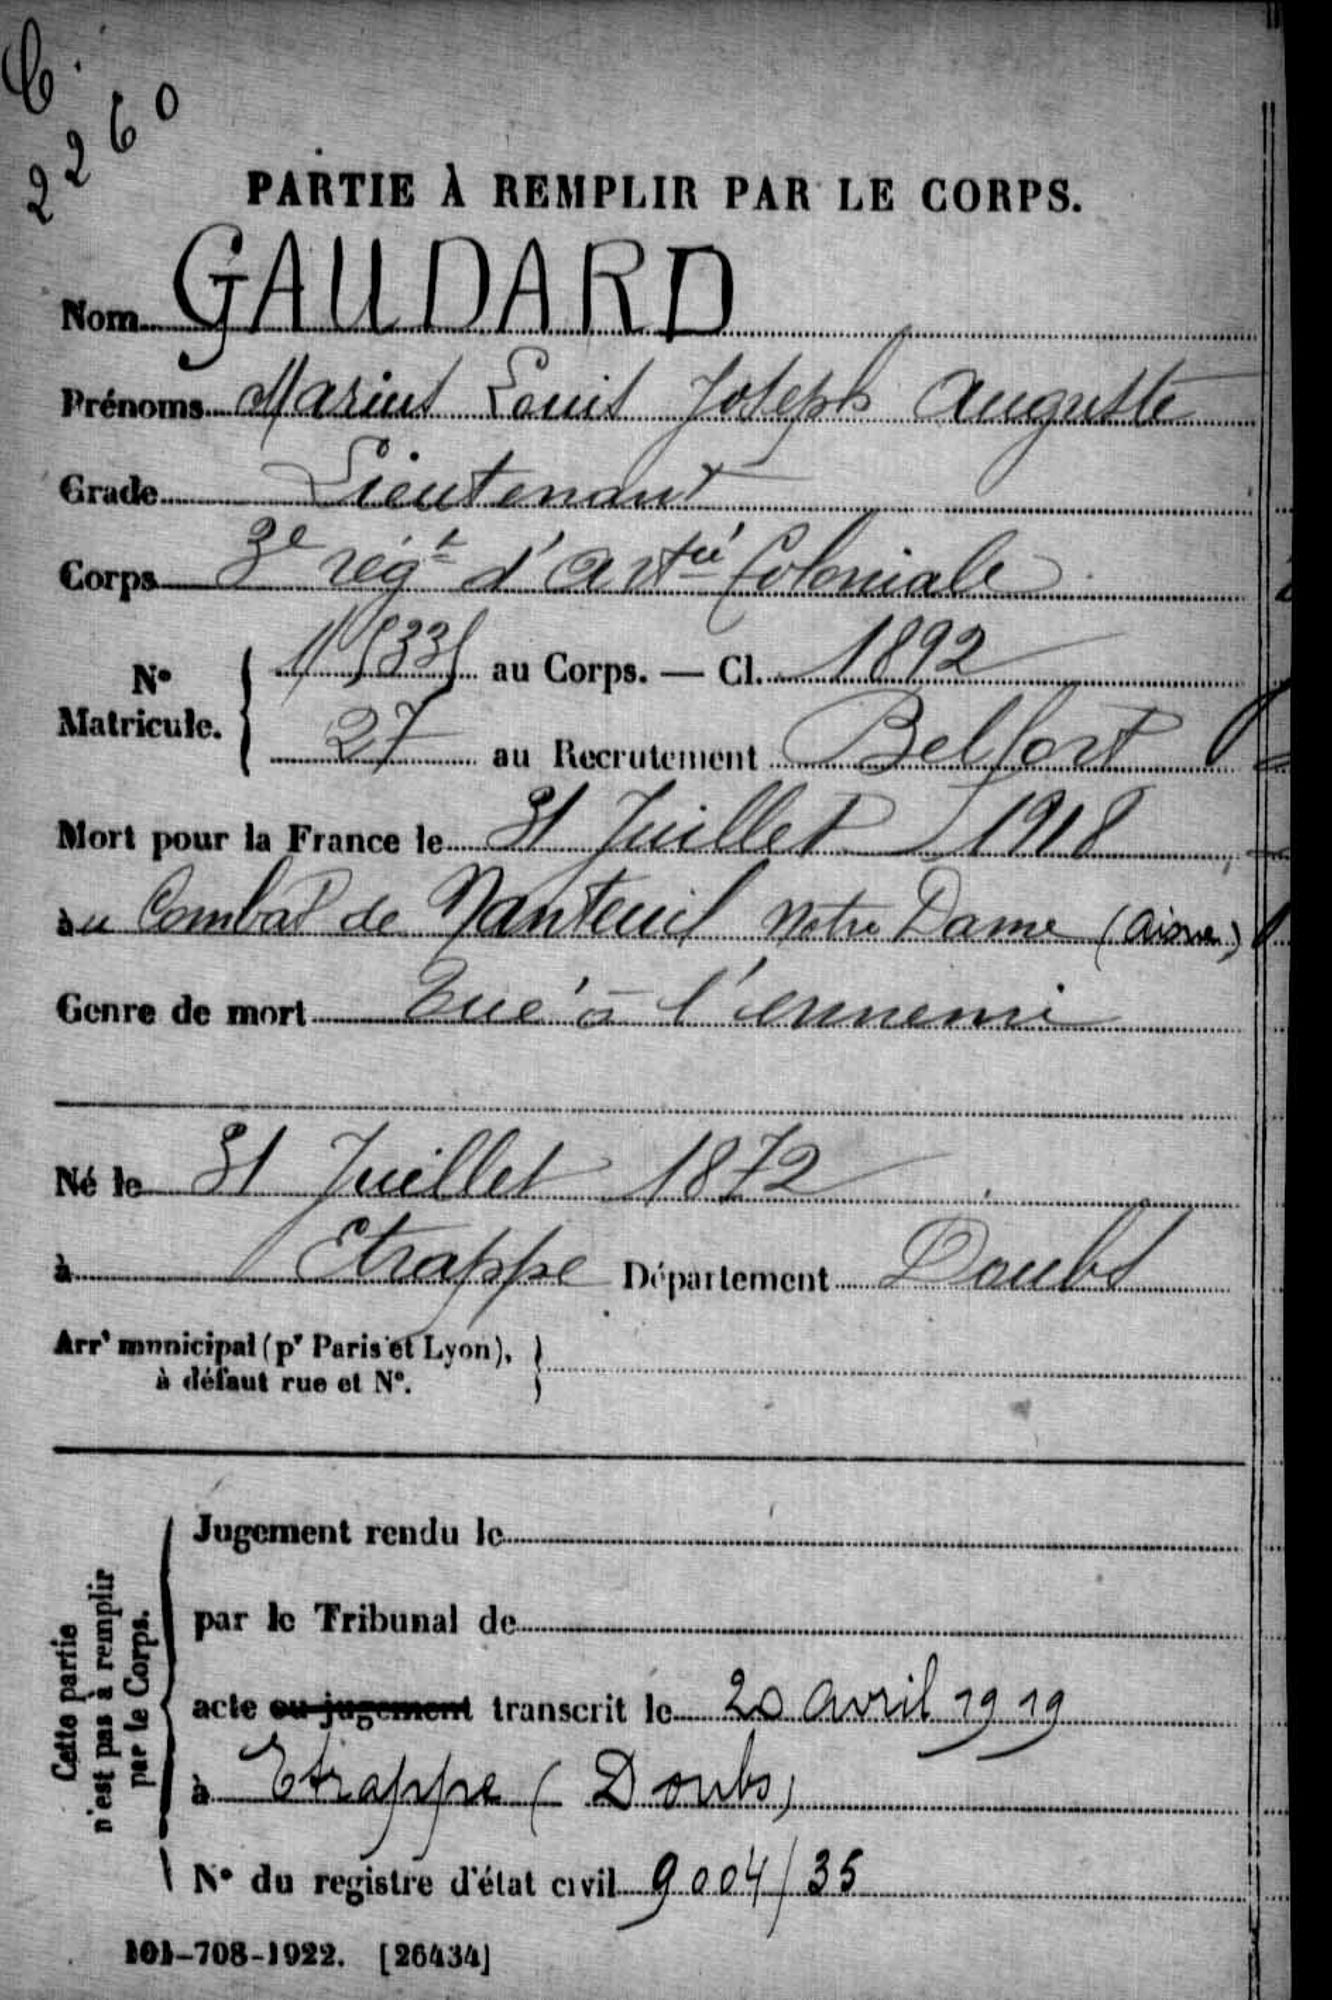 C.
2260
PARTIE À REMPLIR PAR LE CORPS.
Nom GAUDARD
Prénoms Marius Louis Joseph Auguste
Grade Lieutenant
Corps 3e régt d'artie Coloniale
No Matricule.
au Corps. — Cl. 1892
27 au Recrutement Belfort
Mort pour la France le 31 Juillet 1918
au Combat de Nanteuil Notre Dame (Aisne)
Genre de mort Tué à l'ennemi
Né le 31 Juillet 1872
à Etrappe Département Doubs
Arrt municipal (pr Paris et Lyon),
à défaut rue et No.
Cette partie
n'est pas à remplir
par le Corps.
Jugement rendu le
par le Tribunal de
acte ou jugement transcrit le 20 avril 1919
à Etrappe (Doubs)
No du registre d'état civil 9004/35
101-708-1922. [26434]